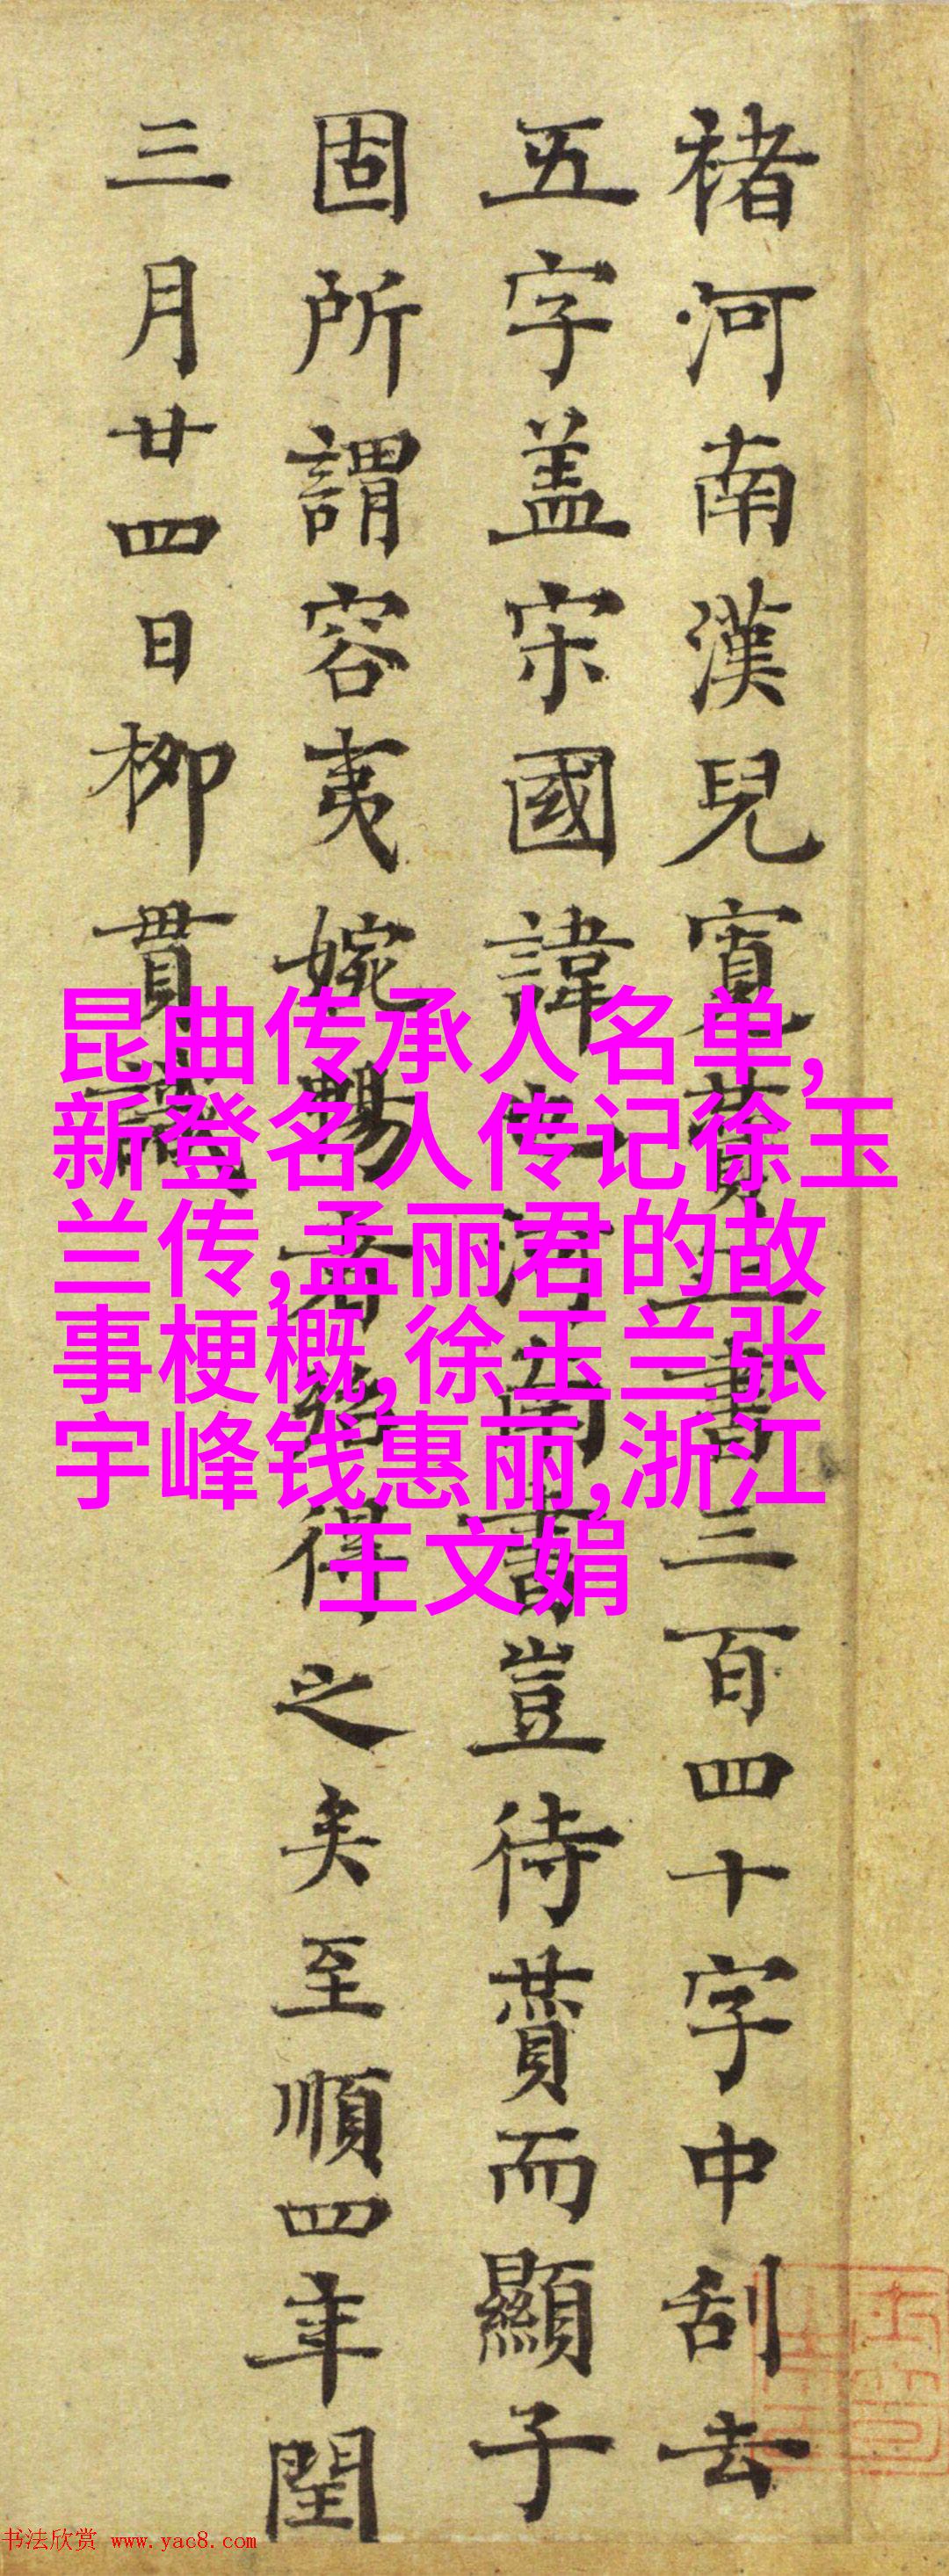 褚河南漢兒寬賛一書三百四十字中刮去
五字盖宋國諱也河南書豈待賛而顯予
固所謂容夷婉暢者得之矣至順四年閏
三月廿四日柳貫識
昆曲传承人名单,
新登名人传记徐玉
兰传,孟丽君的故
事梗概,徐玉兰张
宇峰钱惠丽,浙江
王文娟
书法欣赏 www.yac8.com